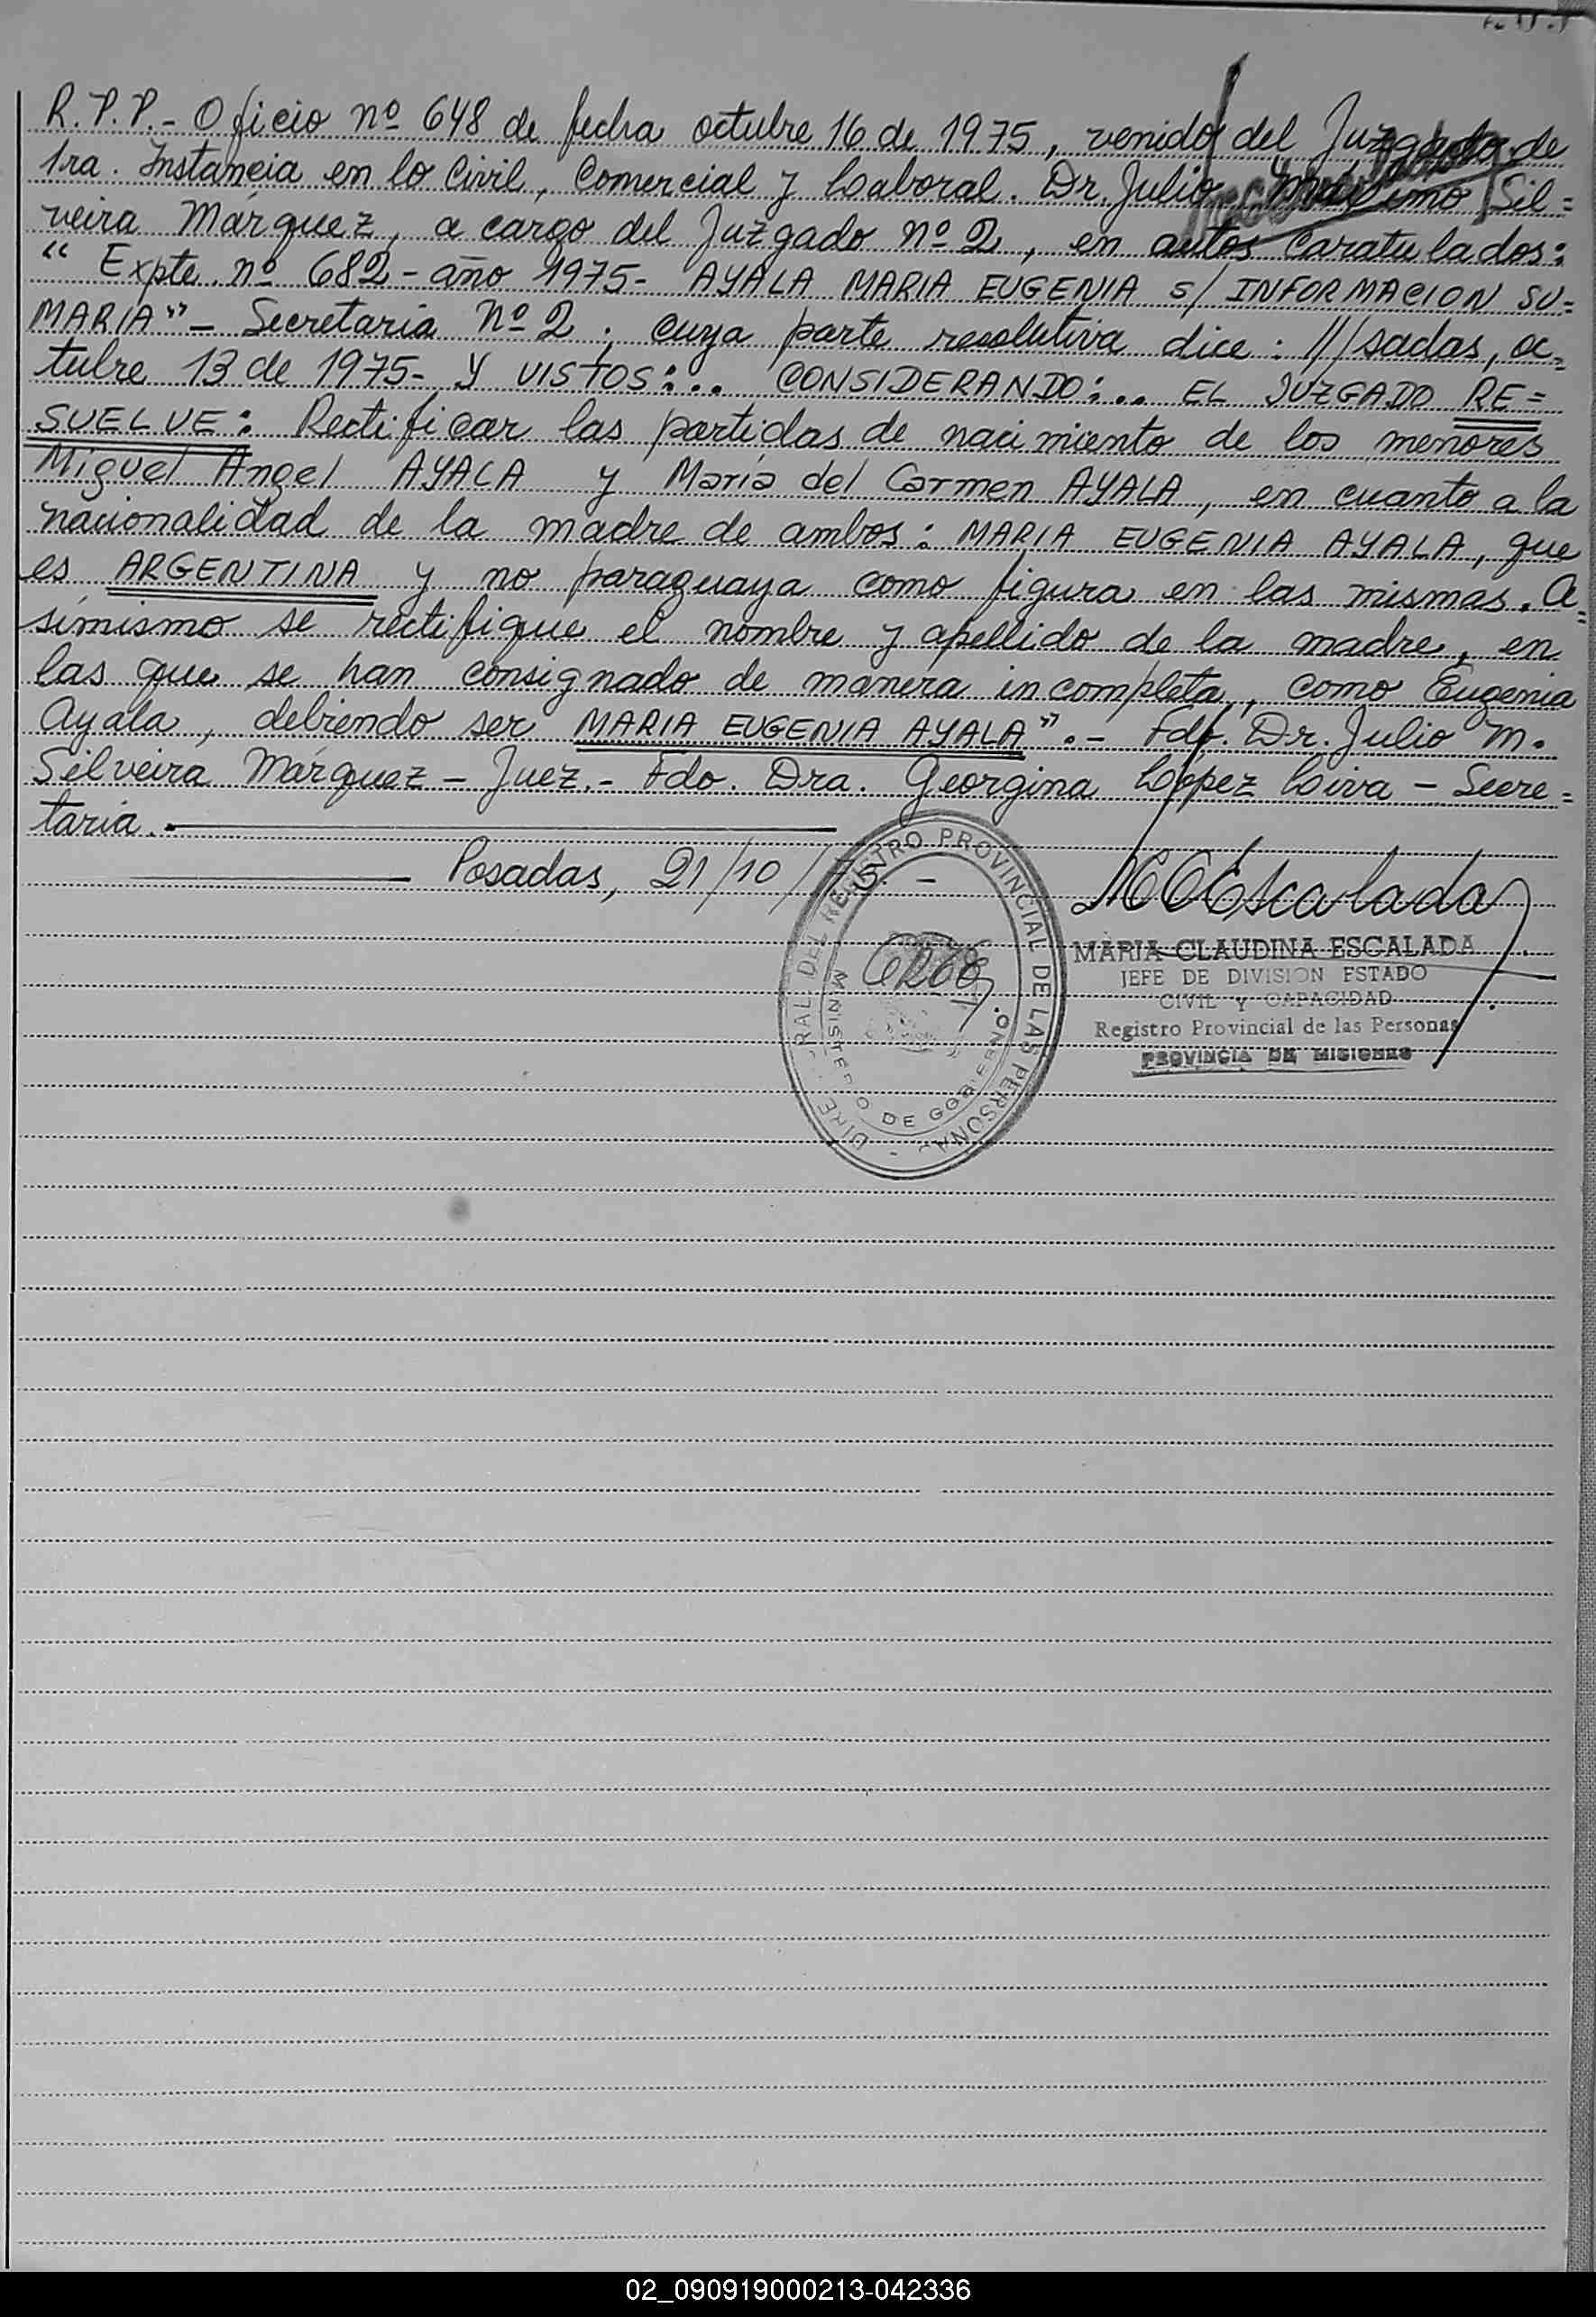 R.P.P.- Oficio nº 648 de fecha octubre 16 de 1975, venido del Juzgado de
1ra. Instancia en lo Civil, Comercial y Laboral. Dr. Julio Máximo Sil=
veira Márquez, a cargo del Juzgado nº 2, en autos caratulados:
“ Expte. nº 682 - año 1975- AYALA MARIA EUGENIA s/ INFORMACION SU=
MARIA” - Secretaria nº 2; cuya parte resolutiva dice: ///sadas, oc=
tubre 13 de 1975- Y VISTOS:... CONSIDERANDO:... EL JUZGADO RE=
SUELVE: Rectificar las partidas de nacimiento de los menores
Miguel Angel AYALA y María del Carmen AYALA, en cuanto a la
nacionalidad de la madre de ambos: MARIA EUGENIA AYALA, que
es ARGENTINA y no paraguaya como figura en las mismas. A=
simismo se rectifique el nombre y apellido de la madre, en
las que se han consignado de manera incompleta, como Eugenia
Ayala, debiendo ser MARIA EUGENIA AYALA”.- Fdo. Dr. Julio M.
Silveira Márquez - Juez.- Fdo. Dra. Georgina López Liva - Secre=
taria.
Posadas, 21/10/75.-
MCEscalada
MARIA CLAUDINA ESCALADA
JEFE DE DIVISION ESTADO
CIVIL Y CAPACIDAD
Registro Provincial de las Personas
PROVINCIA DE MISIONES
DEL REGISTRO PROVINCIAL DE LAS PERSONAS
MINISTERIO DE GOBIERNO
02_090919000213-042336